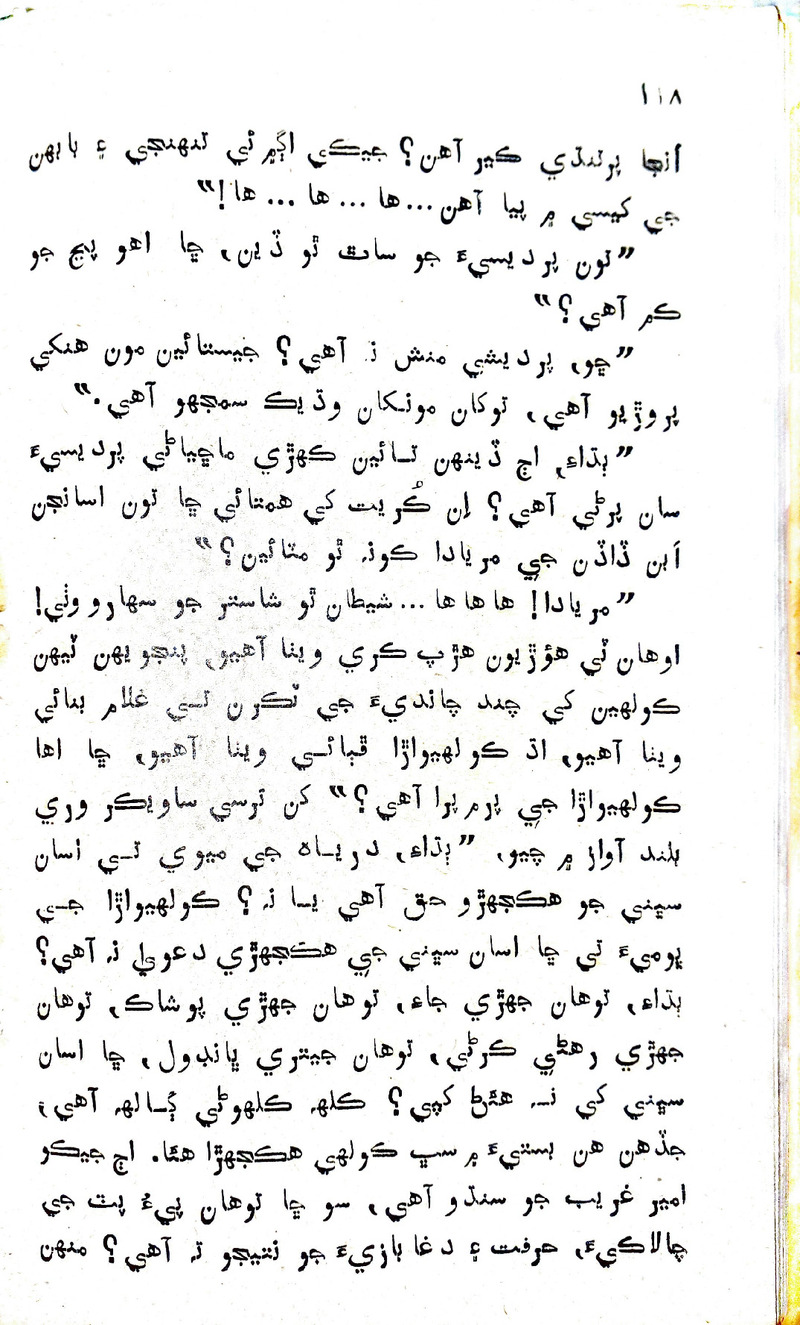 ١١٨
اُنجا پرتندڙي ڪير آهن؟ جيڪي اڳ۾ ئي تنهنجي ۽ ٻانهن
جي کيسي ۾ پيا آهن...ها ... ها ... ها!“
”تون پرديسيءَ جو ساٿ ٿو ڏين، ڇا اهو پڃ جو
ڪم آهي؟“
”ڇو، پرديشي منش نہ آهي؟ جيستائين مون هنکي
پروڙيو آهي، توکان مونکان وڌيڪ سمجهو آهي.“
”ٻڌاءِ، اڄ ڏينهن تائين ڪهڙي ماڇياڻي پرديسيءَ
سان پرڻي آهي؟ اِن ڪُريت کي همتائي ڇا تون اسانجن
اَبن ڏاڏن جي مريادا ڪونہ ٿو مٽائين؟“
”مريادا! ها ها ها ...شيطان ٿو شاستر جو سهارو وٺي!
اوهان ٽي هؤڙيون هڙپ ڪري ويٺا آهيو، پنجويهن ٽيهن
ڪولهين کي چند چانديءَ جي ٽڪرن تي غلام بنائي
ويٺا آهيو، اڌ ڪولهيواڙا ڦٻائي ويٺا آهيو، ڇا اها
ڪولهيواڙا جي پرمپرا آهي؟“ کن ترسي ساويڪر وري
بلند آواز ۾ چيو، ”ٻڌاءِ، درياہ جي ميوي تي اسان
سڀني جو هڪجهڙو حق آهي يا نہ؟ ڪولهيواڙا جي
ڀوميءَ تي ڇا اسان سڀني جي هڪجهڙي دعويٰ نہ آهي؟
ٻڌاءِ، توهان جهڙي جاءِ، توهان جهڙي پوشاڪ، توهان
جهڙي رهڻي ڪرڻي، توهان جيتري ڀانڊول، ڇا اسان
سڀني کي نہ هئڻ کپي؟ ڪلهہ ڪلهوڻي ڳالهہ آهي؛
جڏهن هن بستيءَ ۾ سڀ ڪولهي هڪجهڙا هئا. اڄ جيڪو
امير غريب جو سنڌو آهي، سو ڇا توهان پيءُ پٽ جي
چالاڪيءَ، حرفت ۽ دغابازيءَ جو نتيجو نہ آهي؟ منهن